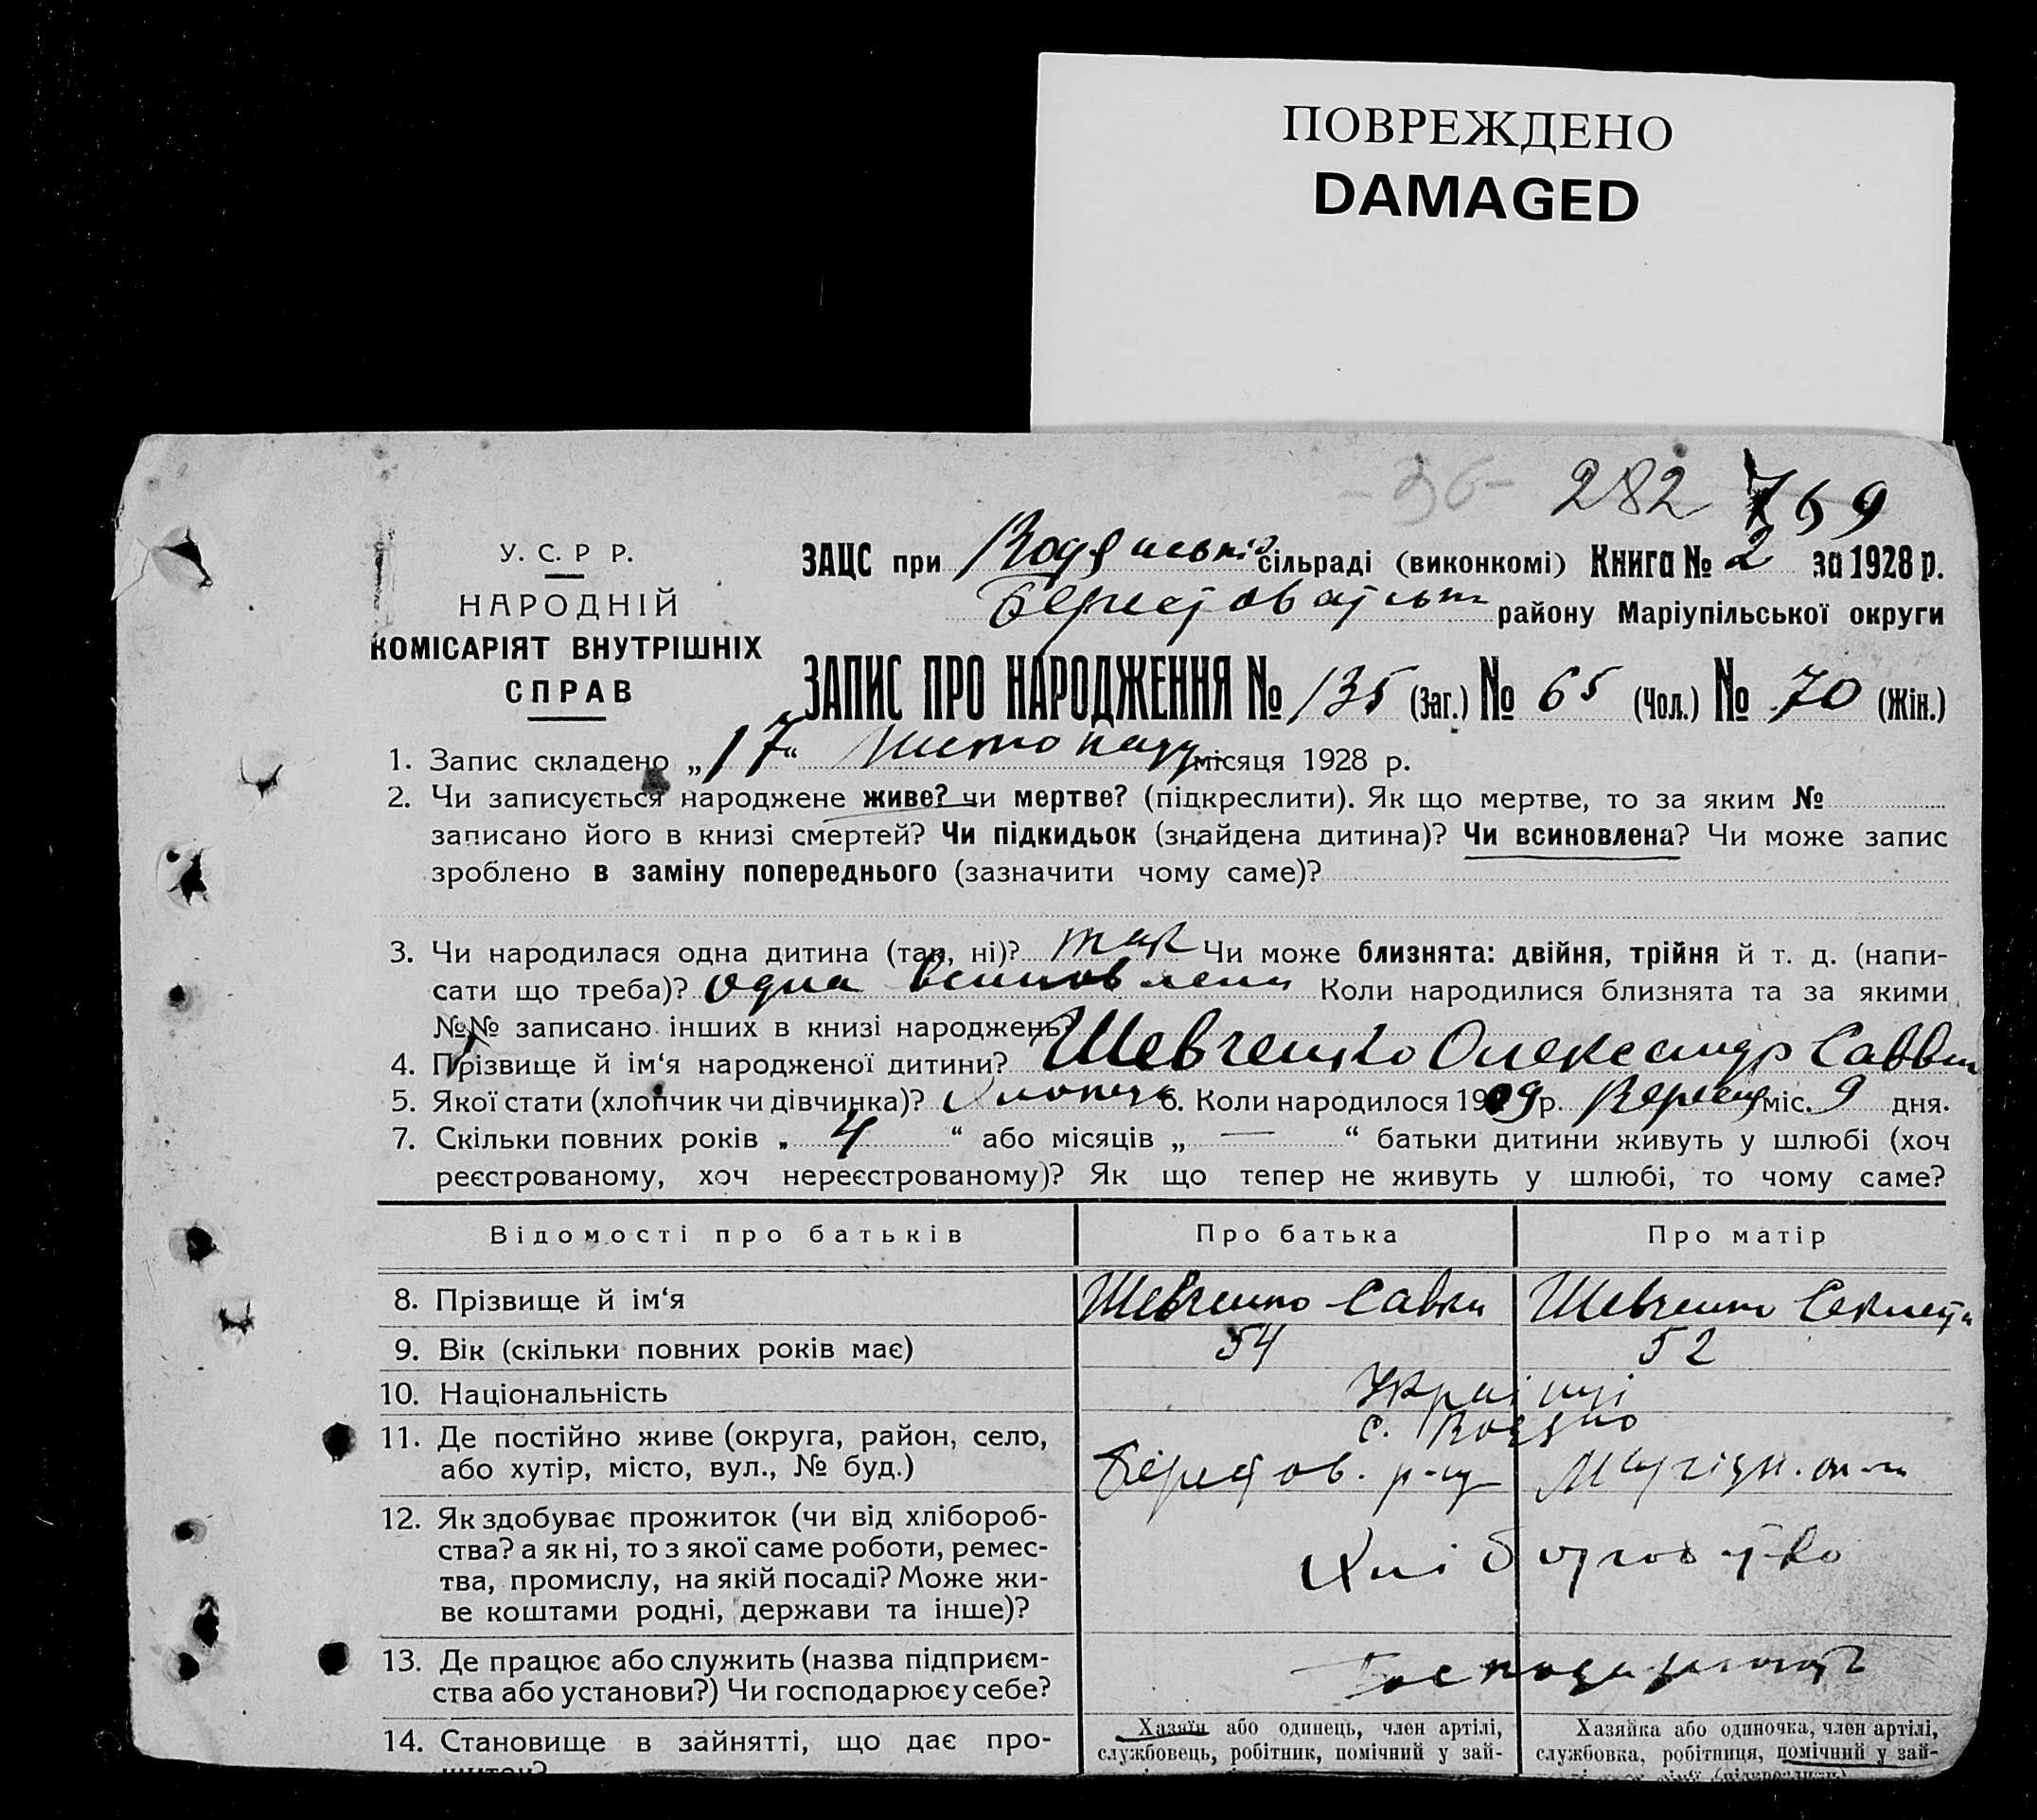 ПОВРЕЖДЕНО
DAMAGED
-36- 282 769
У. С. Р Р.
НАРОДНІЙ
КОМІСАРІЯТ ВНУТРІШНІХ
СПРАВ
ЗАЦС при Водянській сільраді (виконкомі) Книга № 2 за 1928 р.
району Маріупільської округи
ЗАПИС ПРО НАРОДЖЕННЯ № 135 (Заг.) № 65 (Чол.) № 70 (Жін.)
1. Запис складено „17“ Листопаду місяця 1928 р.
2. Чи записується народжене живе? чи мертве? (підкреслити). Як що мертве, то за яким №
записано його в книзі смертей? Чи підкидьок (знайдена дитина)? Чи всиновлена? Чи може запис
зроблено в заміну попереднього (зазначити чому саме)?
3. Чи народилася одна дитина (так, ні)? так Чи може близнята: двійня, трійня й т. д. (напи-
сати що треба)? одна всиновлена Коли народилися близнята та за якими
№№ записано інших в книзі народжень?
4. Прізвище й ім‘я народженої дитини? Шевченко Олександр Савви
5. Якої стати (хлопчик чи дівчинка)? Хлопець 6. Коли народилося 1909 р. Вересня міс. 9 дня.
7. Скільки повних років „ 4 “ або місяців „ — “ батьки дитини живуть у шлюбі (хоч
реєстрованому, хоч нереєстрованому)? Як що тепер не живуть у шлюбі, то чому саме?
Відомості про батьків Про батька Про матір
8. Прізвище й ім‘я Шевченко Савка Шевченко Секлета
9. Вік (скільки повних років має) 54 52
10. Національність Українці
11. Де постійно живе (округа, район, село, с. Водяно
або хутір, місто, вул., № буд.) Берестов. р-ну
12. Як здобуває прожиток (чи від хлібороб-
ства? а як ні, то з якої саме роботи, ремес- Хліборобство
тва, промислу, на якій посаді? Може жи-
ве коштами родні, держави та інше)?
13. Де працює або служить (назва підприєм-
ства або установи?) Чи господарює у себе?
14. Становище в зайнятті, що дає про- Хазяїн або одинець, член артілі, Хазяйка або одиночка, член артілі,
службовець, робітник, помічний у зай- службовка, робітниця, помічний у зай-